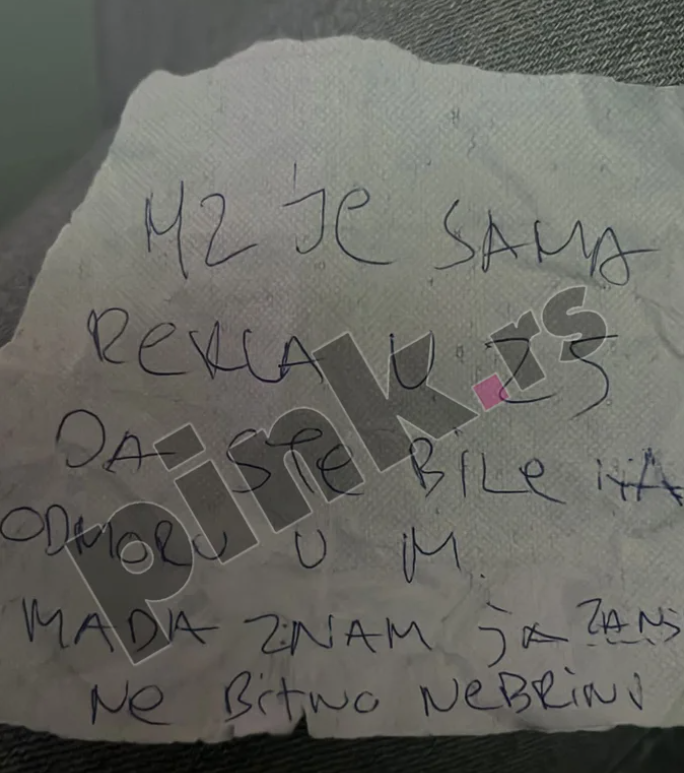 MZ JE SAMA
REKLA U 25
DA STE BILE NA
ODMORU U M.
MADA ZNAM ja
NE BITNO NEBRINI
pink.rs